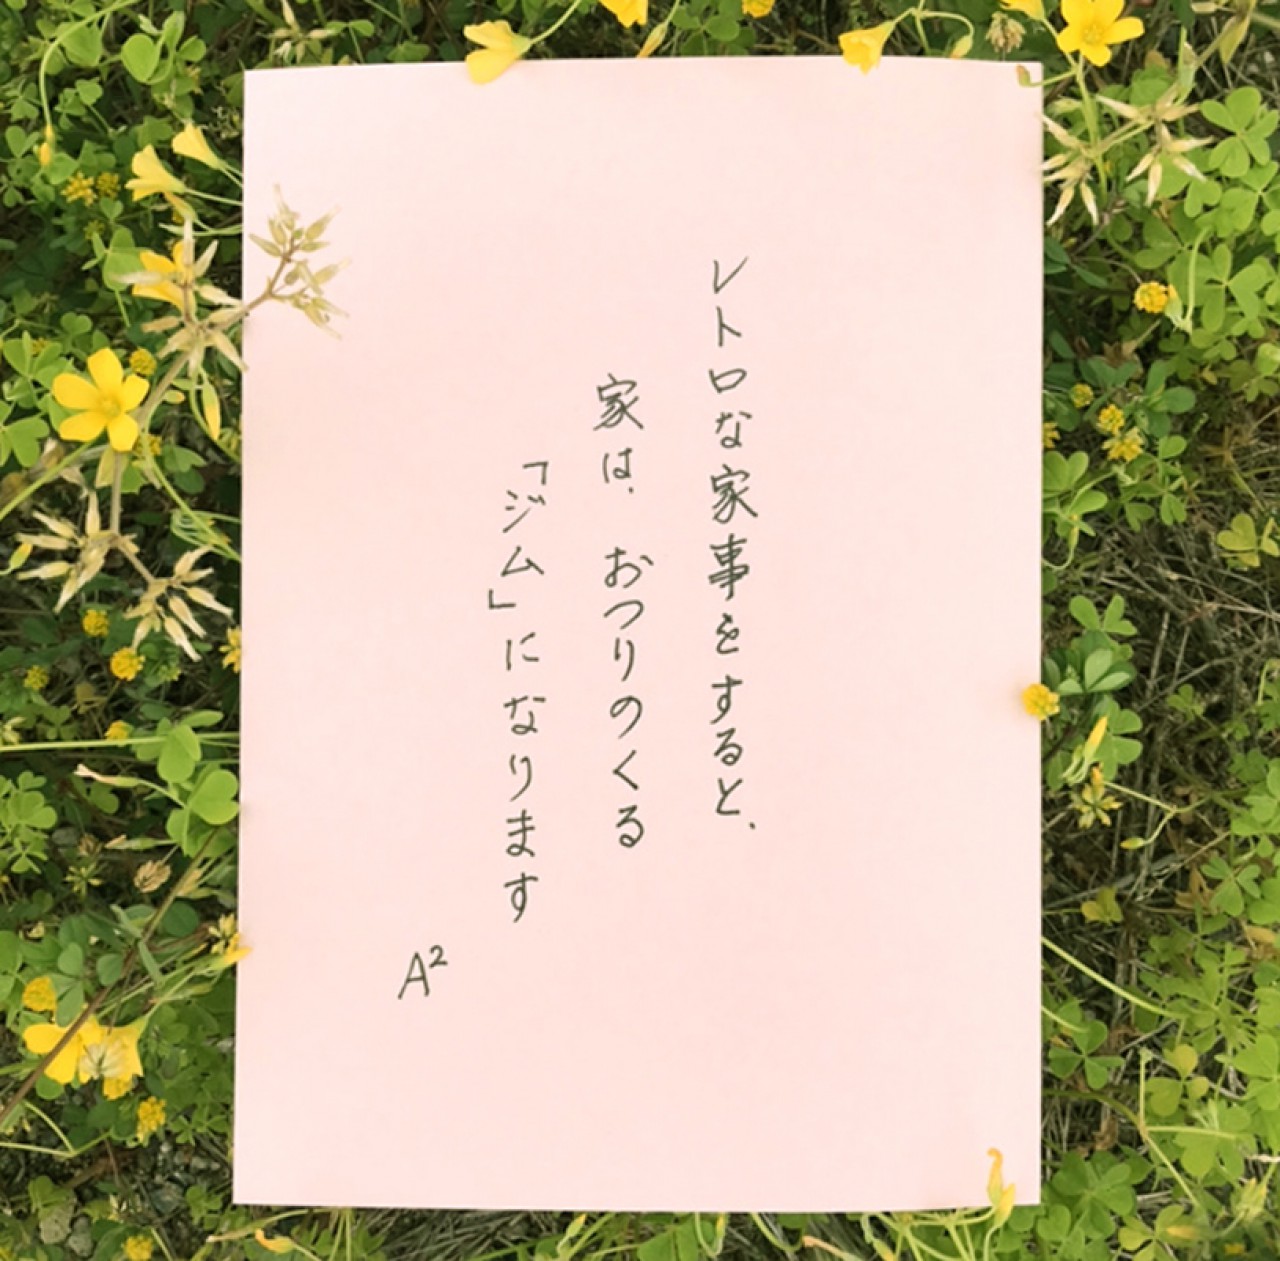 レトロな家事をすると、
家は、おつりのくる
「ジム」になります
A²